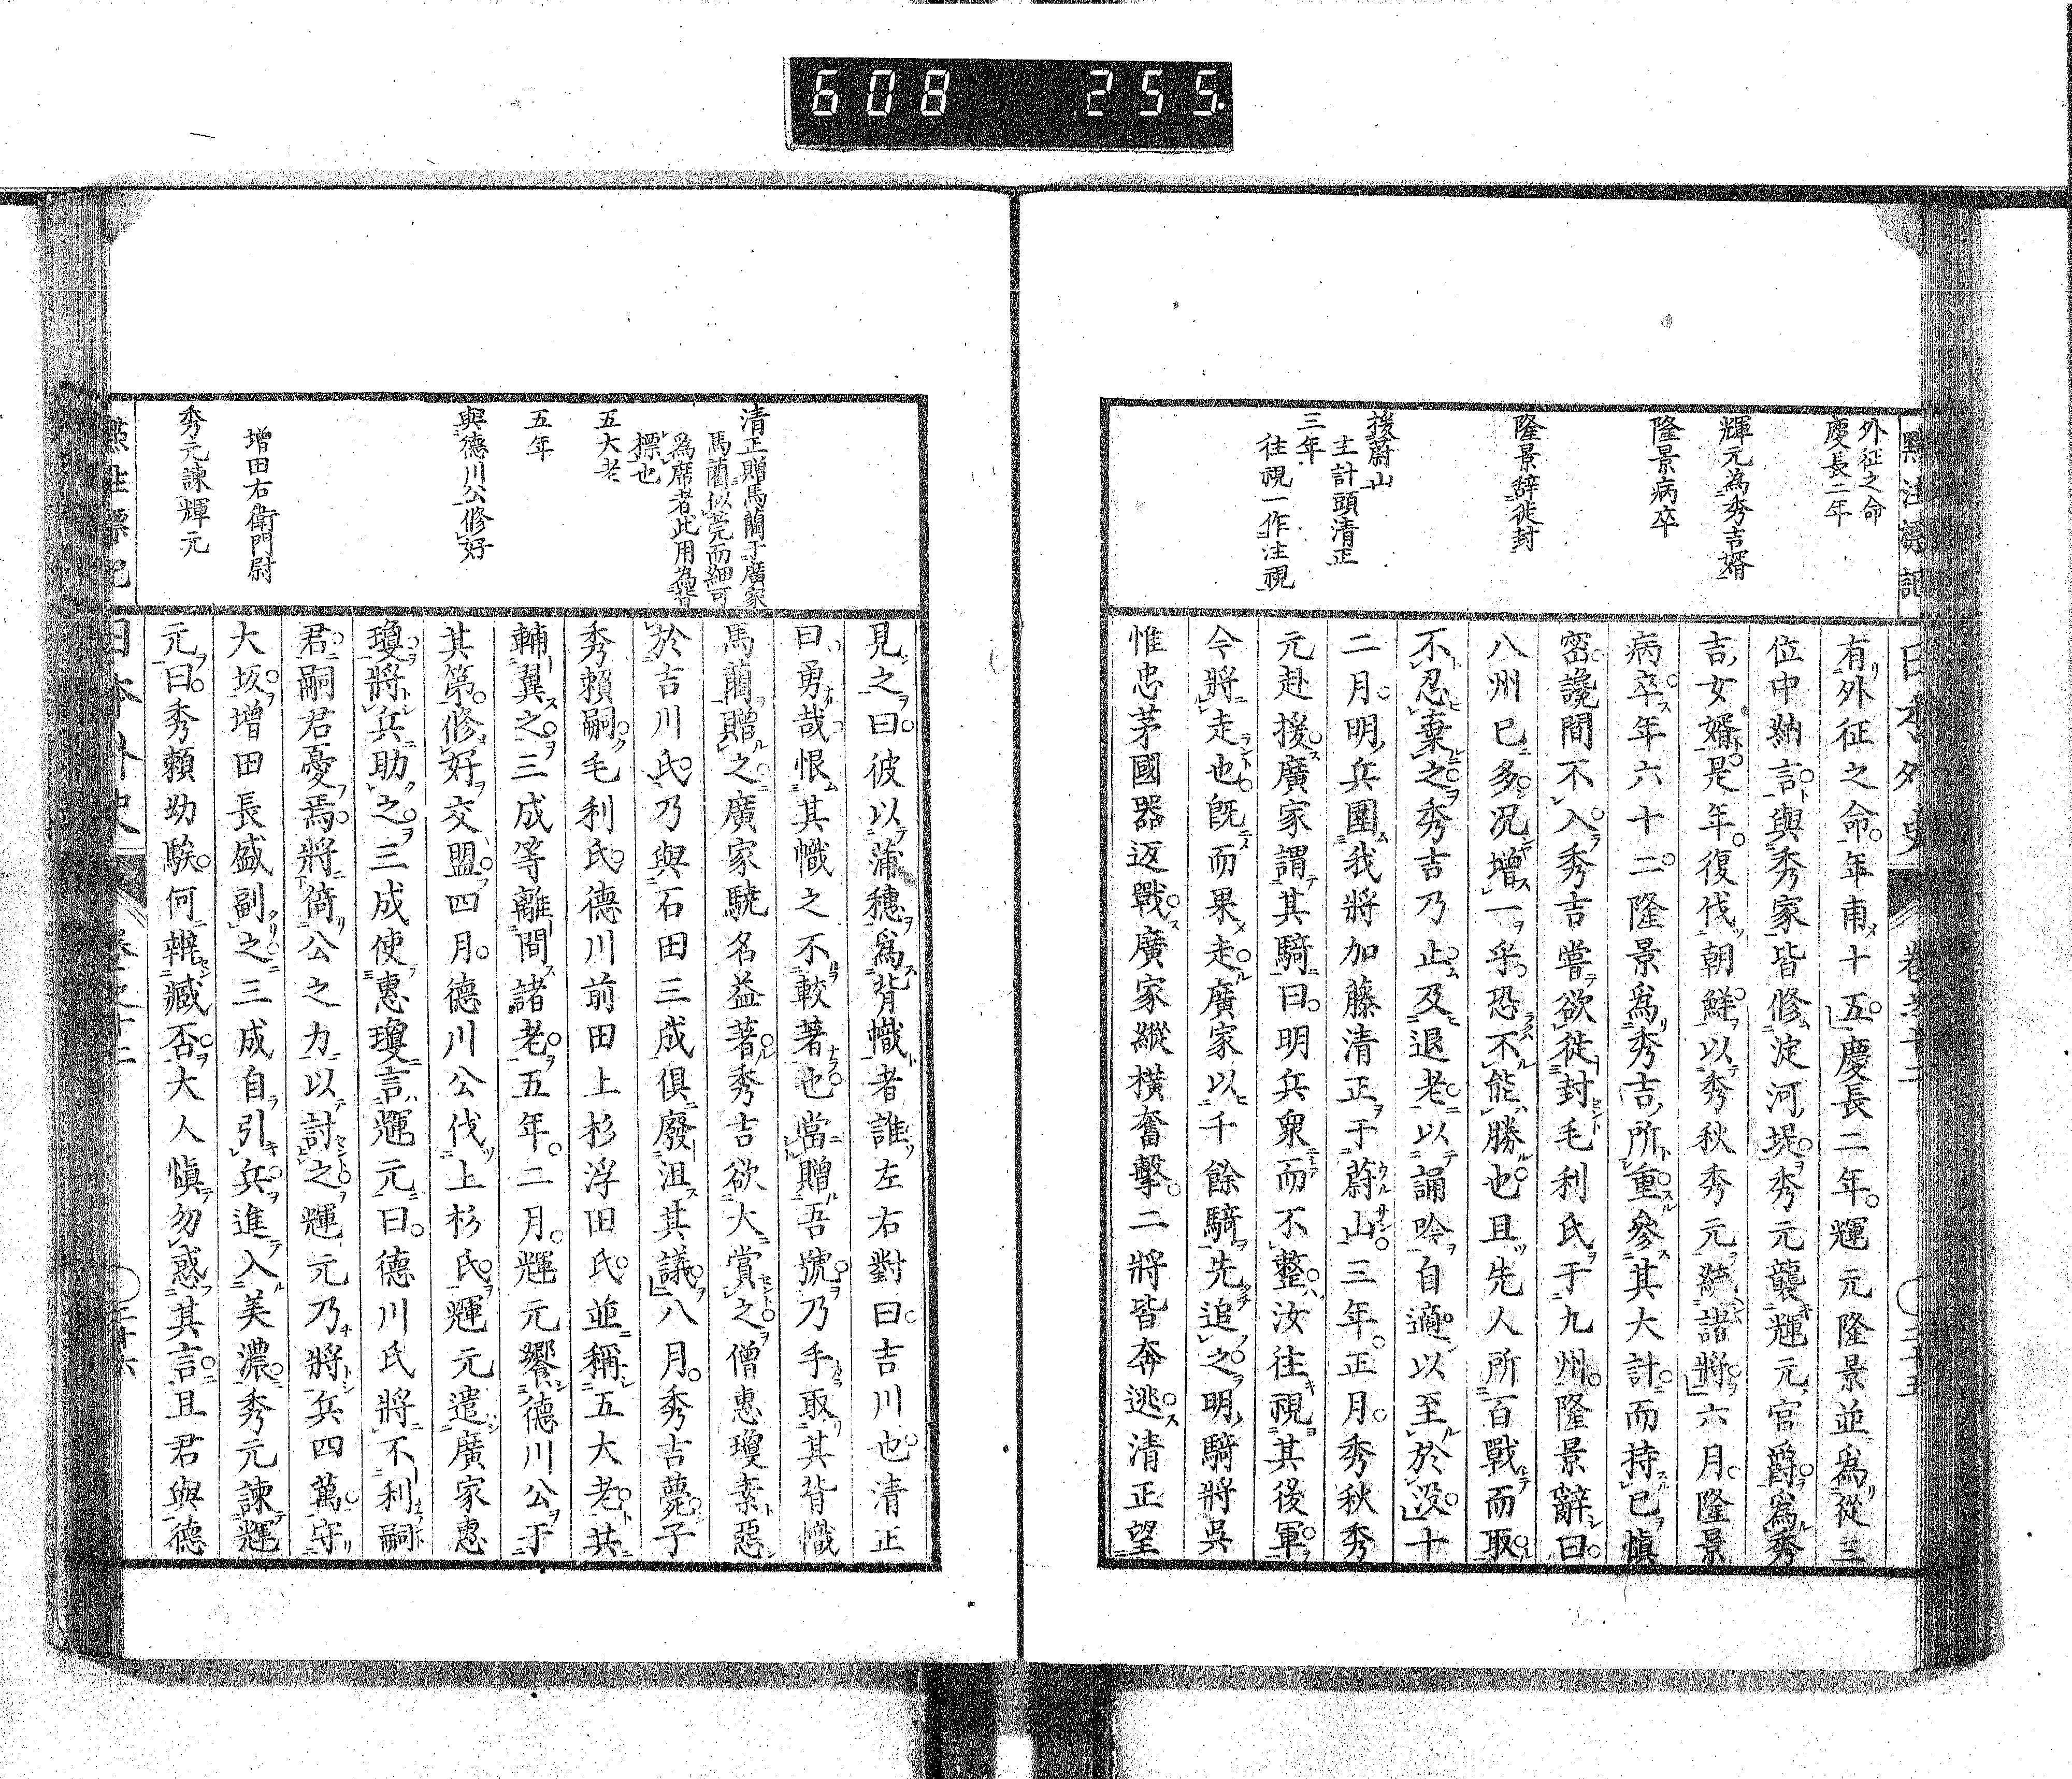 608 255
外征之命
慶長二年
輝元為秀吉婿
隆景病卒
隆景辞徙封
援蔚山
主計頭清正
三年
往視一作注視
日本外史
有外征之命年甫十五慶長二年輝元隆景並爲從三
位中納言與秀家皆修淀河堤秀元襲輝元官爵爲秀
吉女婿是年復伐朝鮮以秀秋秀元統諸將六月隆景
病卒年六十二隆景爲秀吉所重參其大計而持已愼
密讒間不入秀吉嘗欲徙封毛利氏于九州隆景辭曰
八州已多况增一乎恐不能勝也且先人所百戰而取
不忍棄之秀吉乃止及退老以誦吟自適以至於没十
二月明兵圍我將加藤清正于蔚山三年正月秀秋秀
元赴援廣家謂其騎曰明兵衆而不整汝往視其後軍
今將走也旣而果走廣家以千餘騎先追之明騎將吳
惟忠茅國器返戰廣家縱横奮擊二將皆奔逃清正望
清正贈馬藺于廣家
馬藺似莞而細可
為席者此用為背
標也
五大老
五年
與德川公修好
增田右衛門尉
秀元諫輝元
見之曰彼以蒲穗爲背幟者誰左右對曰吉川也清正
曰勇哉恨其幟之不較著也當贈吾號乃手取其背幟
馬藺贈之廣家驍名益著秀吉欲大賞之僧惠瓊素惡
於吉川氏乃與石田三成俱廢沮其議八月秀吉薨子
秀賴嗣毛利氏德川前田上杉浮田氏並稱五大老共
輔翼之三成等離間諸老五年二月輝元饗德川公于
其第修好交盟四月德川公伐上杉氏輝元遣廣家惠
瓊將兵助之三成使惠瓊言輝元曰德川氏將不利嗣
君嗣君憂焉將倚公之力以討之輝元乃將兵四萬守
大坂增田長盛副之三成自引兵進入美濃秀元諫輝
元曰秀賴幼騃何辨臧否大人愼勿惑其言且君與德